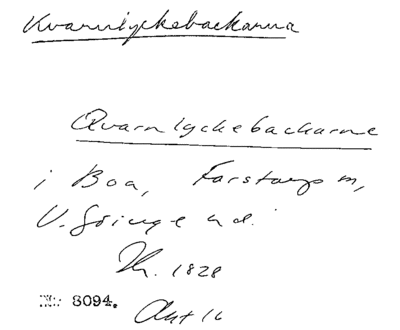 Kvarnlyckebackarna
Qvarnlyckebackarne
i Boa, Farstorps sn,
V. Göinge hd.
Kr. 1828
No: 8094. Akt 16